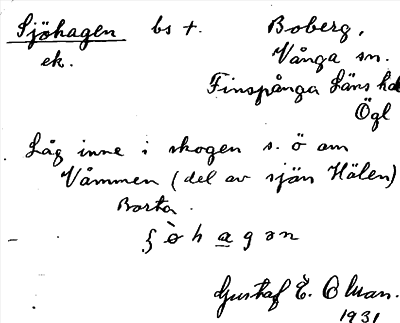 Sjöhagen bs t. Boberg,
ek. Vånga sn.
Finspånga Läns hd
Ögl
Låg inne i skogen s. ö om
Våmmen (del av sjön Hälen)
Borta.
ʃ ò h a g ə n
Gustaf E. Olman.
1931